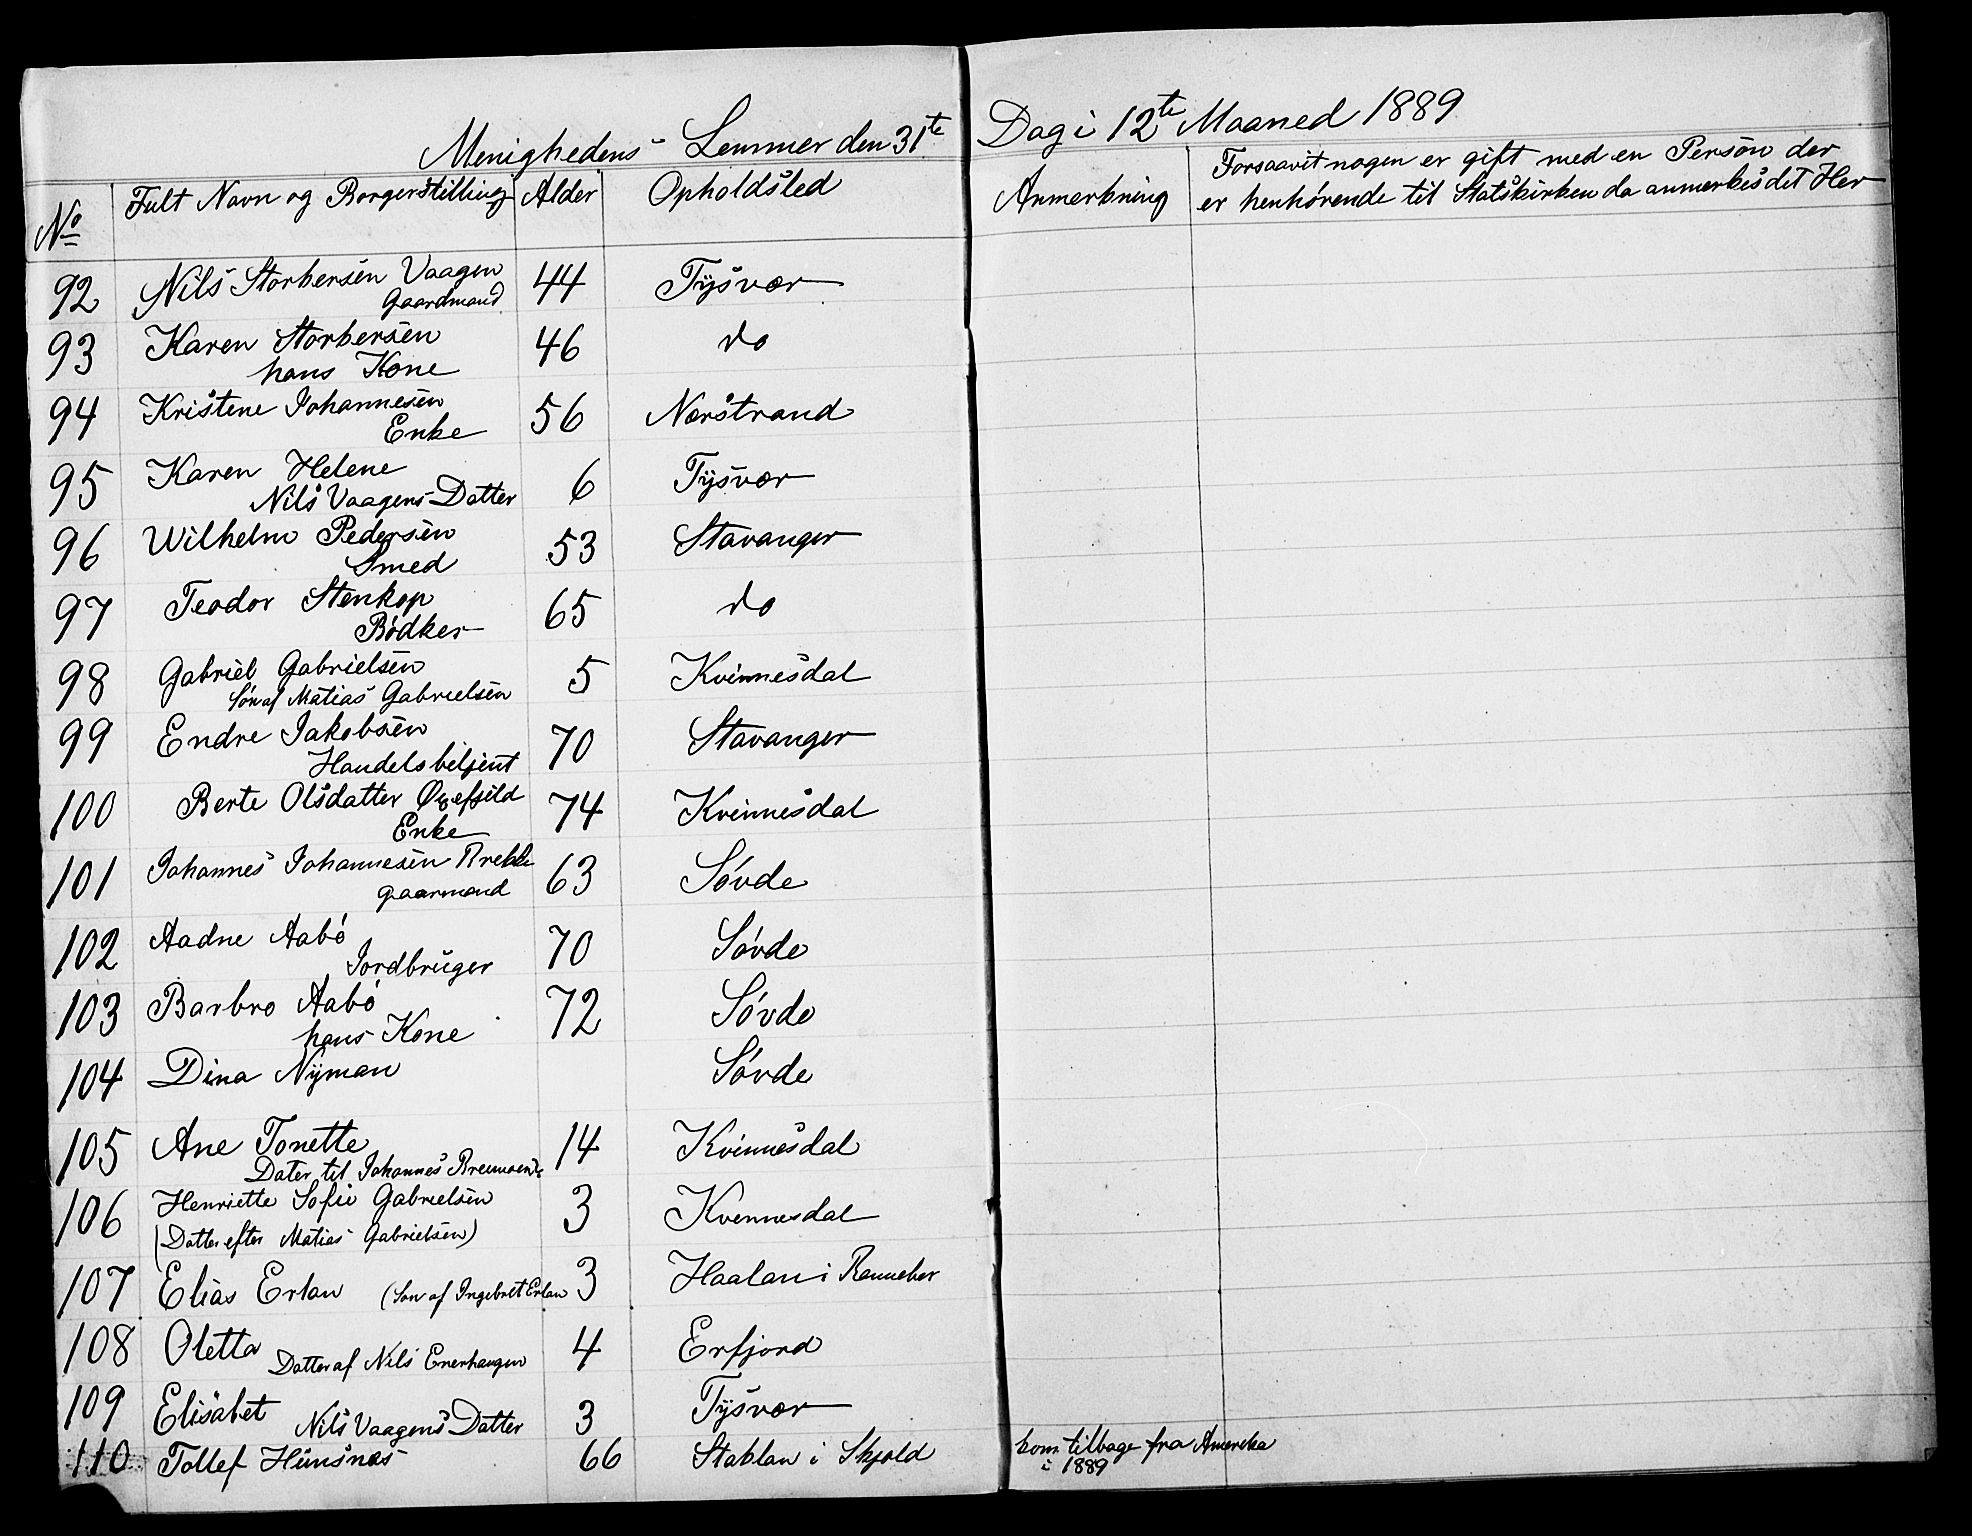 Menighedens Lemmer den 31te Dag i 12te Maaned 1889
No Fult Navn og Borgerstilling Alder Opholdsted Anmerkning Forsaavit nogen er gift med en Person der
er henhørende til Statskirken da anmerkes det Her
92 Nils Storbersen Vaagen 44 Tysvær
Gaardmand
93 Karen Storbersen 46 do
hans Kone
94 Kristene Johannesen 56 Nærstrand
Enke
95 Karen Helene 6 Tysvær
Nils Vaagens Datter
96 Wilhelm Pedersen 53 Stavanger
Smed
97 Teodor Stenkop 65 do
Bødker
98 Gabriel Gabrielsen 5 Kvinnesdal
Søn af Matias Gabrielsen
99 Endre Jakobsen 70 Stavanger
Handelsbetjent
100 Berte Olsdatter 74 Kvinnesdal
Enke
101 Johannes Johannesen 63 Søvde
Gaarmand
102 Aadne Aabø 70 Søvde
Jordbruger
103 Barbro Aabø 72 Søvde
hans Kone
104 Dina Nyman Søvde
105 Ane Tonette 14 Kvinnesdal
Dater til Johannes
106 Henriette Sofie Gabrielsen 3 Kvennesdal
(Datter efter Matias Gabrielsen)
107 Elias Erlan (Søn af Ingebret Erlan 3 Haalan i Renneber
108 Oletta Datter af Nils Enerhaugen 4 Erfjord
109 Elisabet Nils Vaagens Datter 3 Tysvær
110 Tollef Himsnæs 66 Stablan i Skjold kom tilbage fra Amereka
i 1889